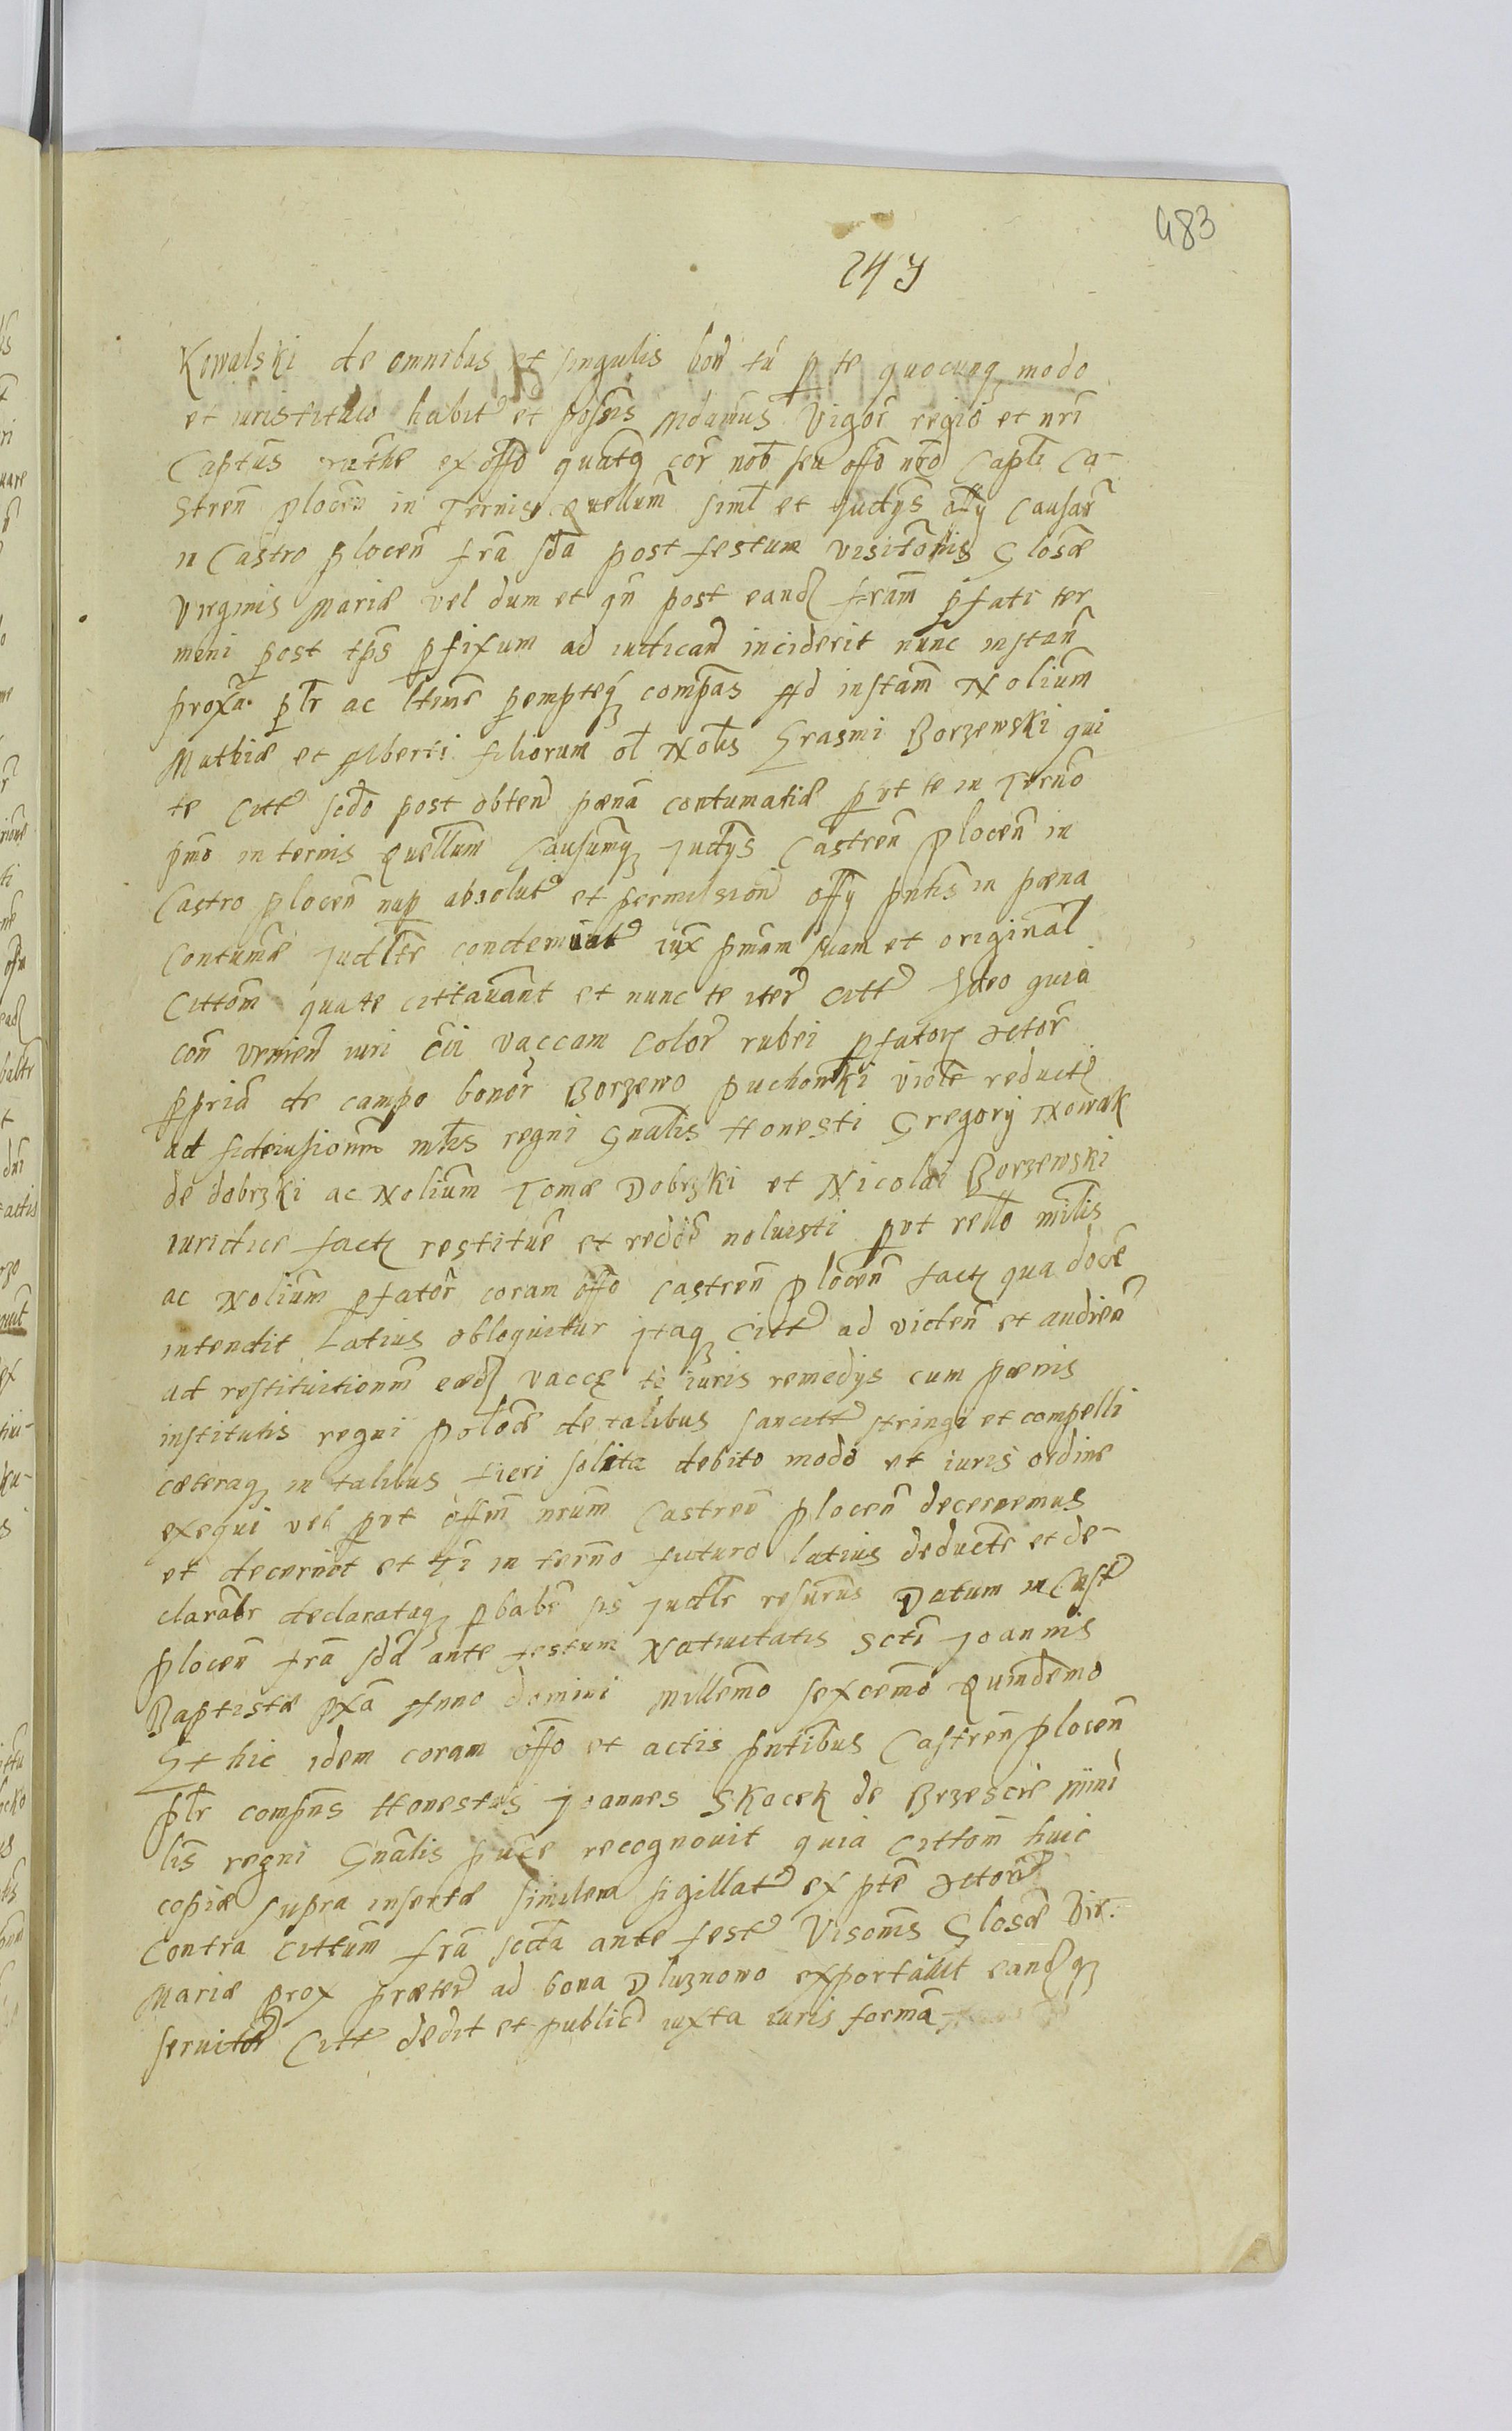 483
247
Kowalski de omnibus et singulis bon tuı p te quocunq modo
et iuristitulo habit et possis Mdamus Vigor regio et nri
Captus ex offo quatq cor nob seu offo nro Capli Ca-
stren plocen in Ternis Quellum siml et Judys offy Causar
n Castro plocen fra sda post festum visitonis Glosae
Virginis Mariae vel dum et qn post eand fram pfati ter
mini post tps pfixum ad iudicand inciderit nunc instan
proxa plr ac ltme pempteq compas Ad instam Nolium
Mathiae et Alberti filiorum ol Nobis Erasmi Borzewski qui
te Citt scdo post obten paena contumatiae put te in Terno
pmo in ternis Quellum Causumq Judys Castren plocen in
Castro plocen nup absolut et permission offy pntis in paena
Contumae Judltr condemnat iux pmam suam et original
Cittom qua te cittavant et nunc te iter citt Ideo quia
con venien iuri cui vaccam color rubei pfator Actor
ppria de campo bonor Borzewo puchowki viote reduct
ad fideiussionm mlis regni Gnalis Honesti Gregory Nowak
de dobrzki ac Nolium Tomae Dobrzki et Nicolai Borzewski
iuridice fact restitue et redde noluisti put rello milis
ac Nolium pfator coram offo Castren plocen fact qua doce
intendit Latius obloquitur Itaq Citt ad viden et audien
ad restituitionm eaed vacce te iuris remedys cum paenis
institutis regni Polonae de talibus sancitt stringi et compelli
caeteraq in talibus fieri solita debito modo et iuris ordine
exequi vel put offm nrum Castren plocen decernemus
et decernit et ti in terno futuro latius deductr et de-
clarabr declarataq pbabr sis Judltr resurus Datum in Cast
plocen fra sda ante festum Nativitatis Scti Joannis
Baptistae pxa Anno domini millemo sexcemo Quindemo
Et hic idem coram offo et actis pntibus Castren plocen
plr compns Honestus Joannes Skocek de Brzescie mini
lis regni Gnalis puce recognovit quia Cittom huic
copiae supra insertae similem sigillat ex pte Actor
contra cittum fra secta ante fest Visonis Glosae Vir.
Mariae prox praeter ad bona Dluznowo exportavit eandq
servitor Citt dedit et public iuxta iuris forma